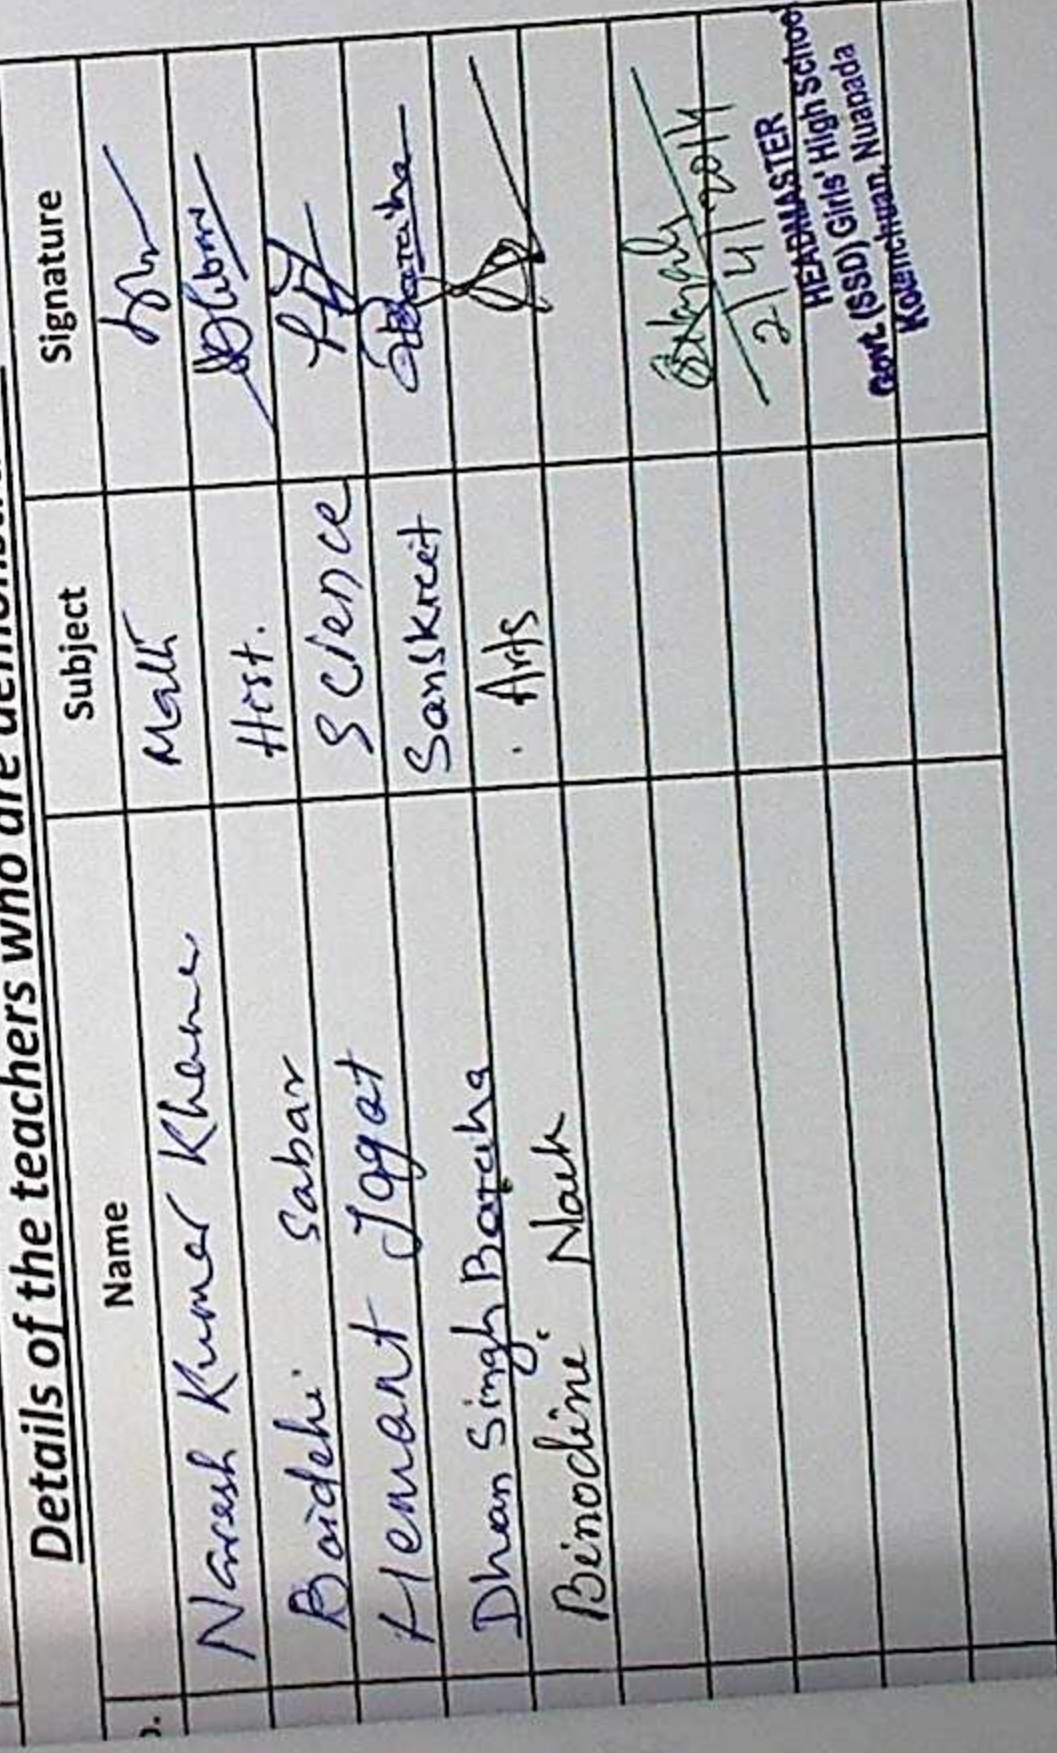 Details of the teachers who are
Name Subject Signature
Naresh Kumar Khamar Math
Baidehi Sabar Hist.
Hemant Jagat Science
Dhan Singh Baraha Sanskreit
Beinodini Naik Arts
2/4/2014
HEADMASTER
Govt. (SSD) Girls' High School
Nuapada